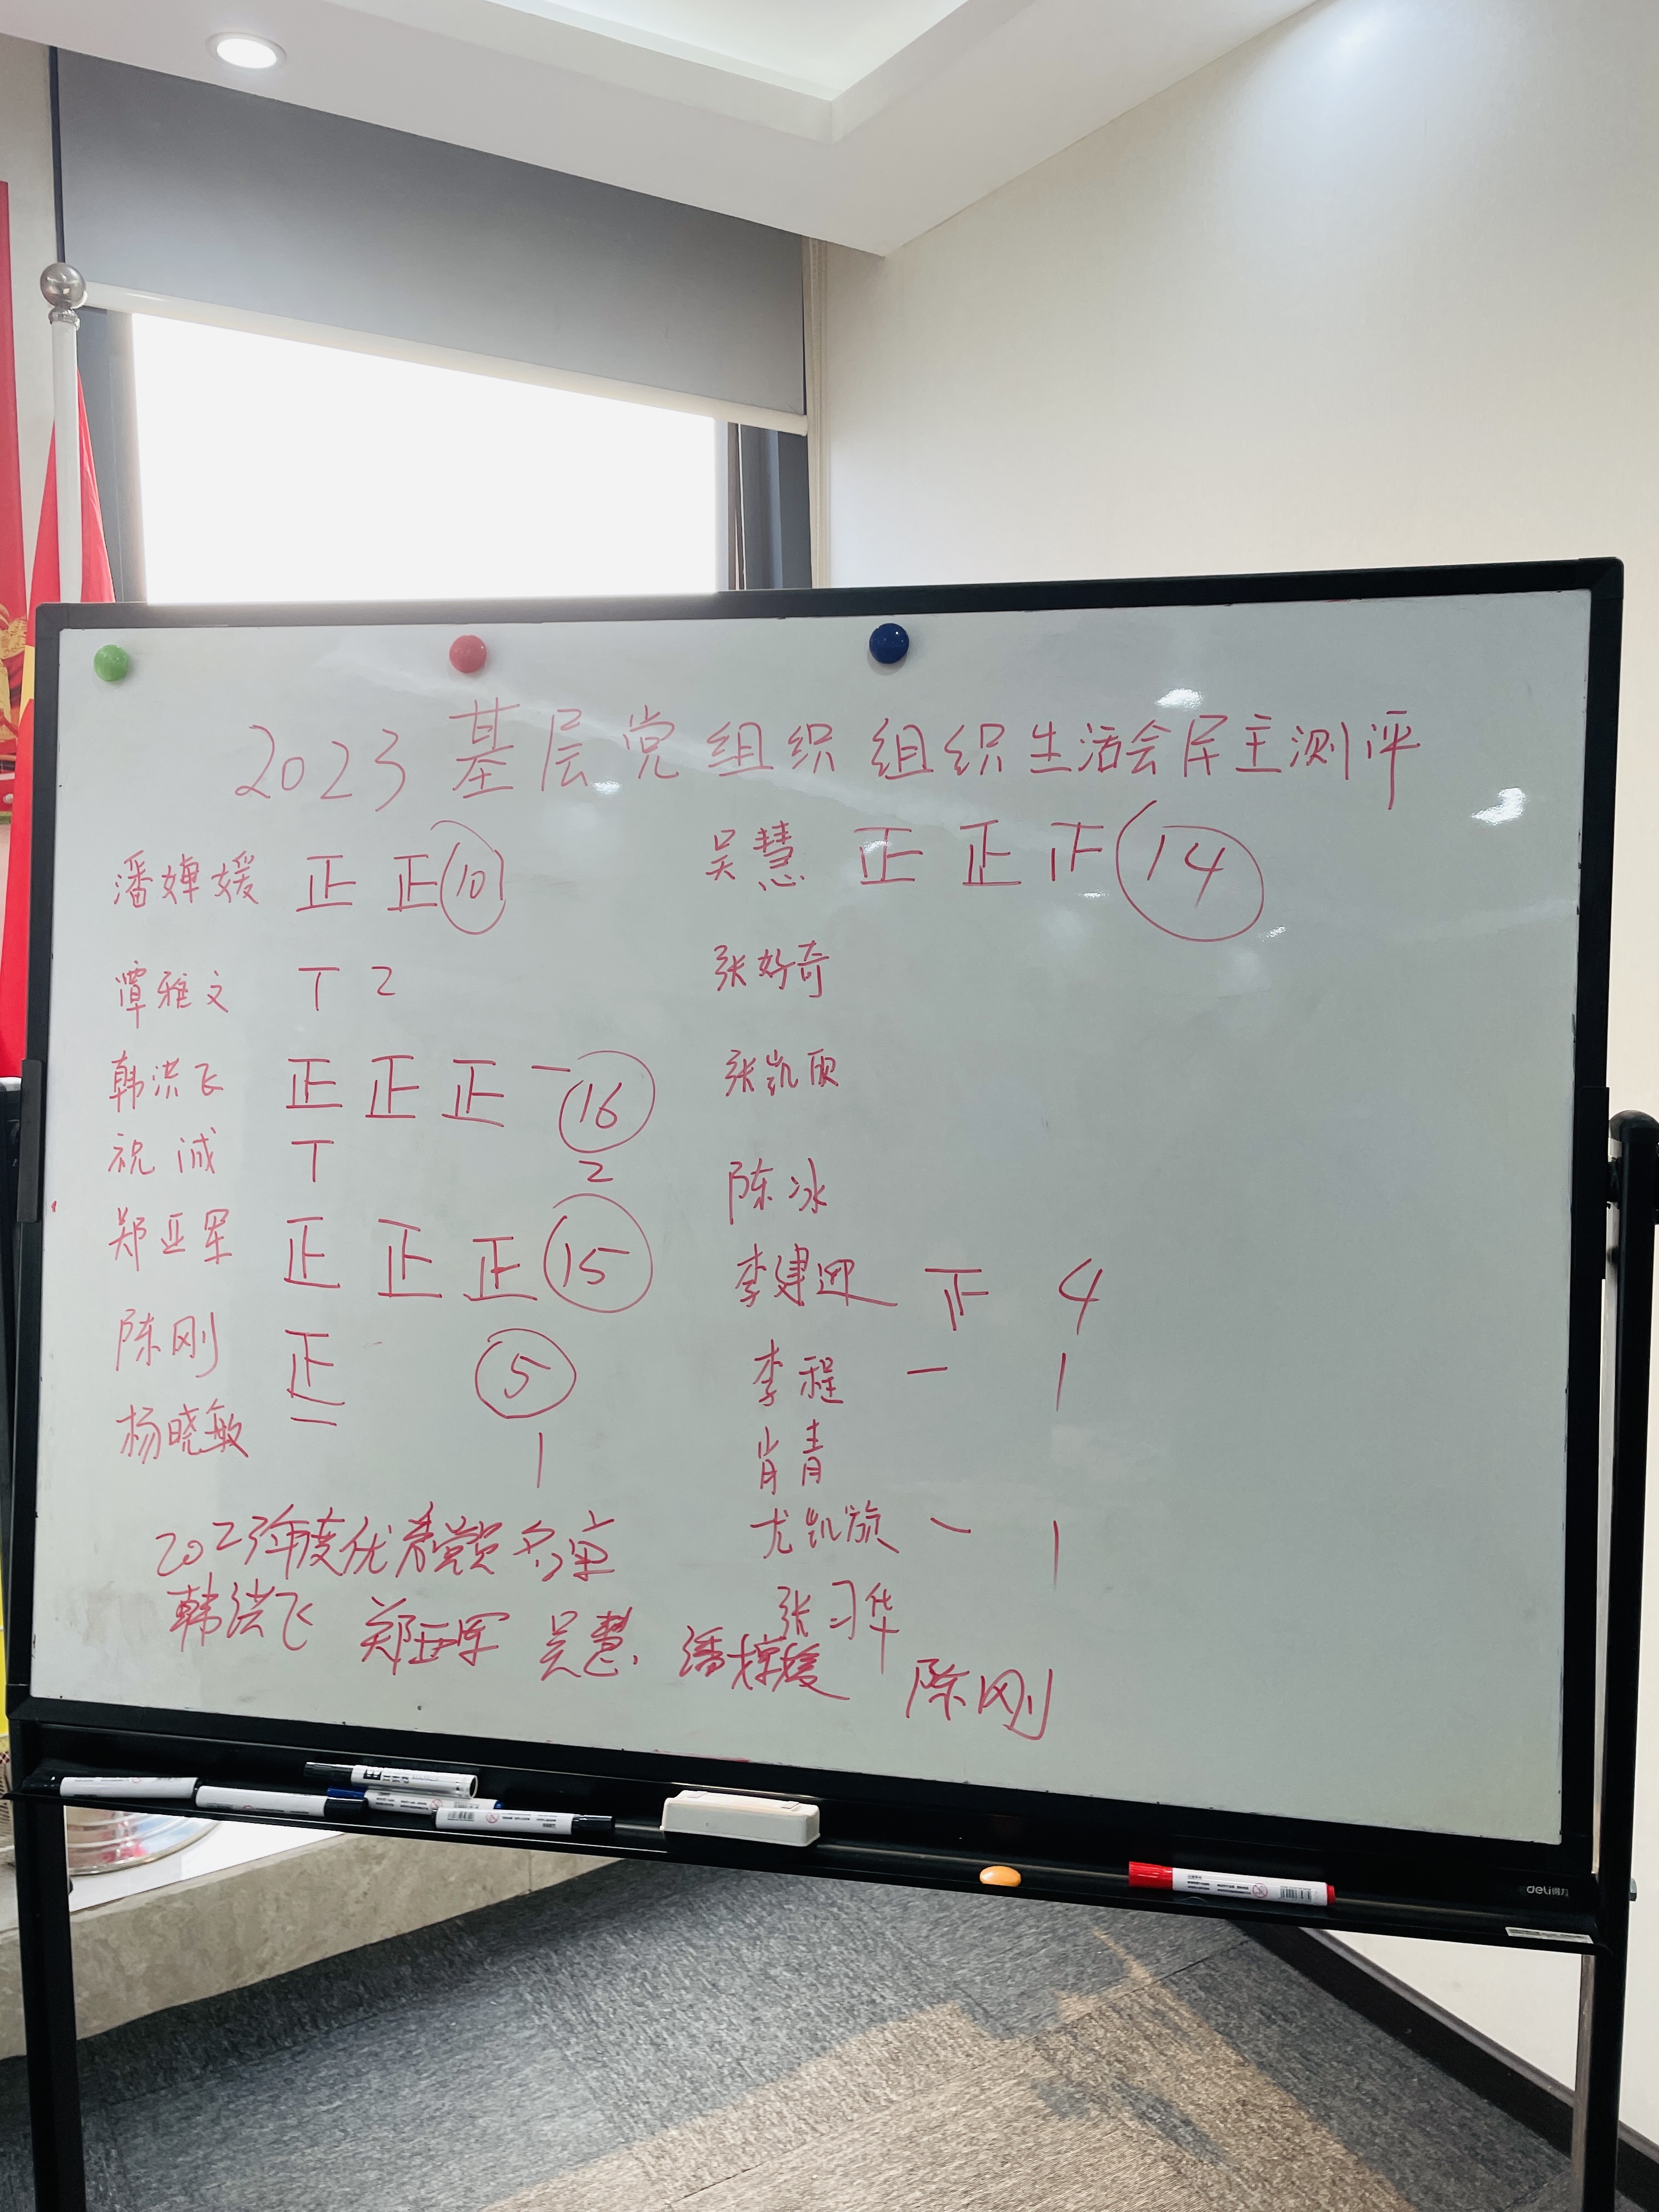 2023基层党组织组织生活会民主测评
潘婵媛 正 正 10
谭雅文 T 2
韩洪飞 正 正 正 一 16
祝诚 T 2
郑亚军 正 正 正 15
陈刚 正 5
杨晓敏 一 1
吴慧 正 正 正 14
张好奇
张凯欣
陈冰
李建迎 正 4
李程 一 1
肖青
尤凯旋 一 1
张习华
2023年度优秀党员名单
韩洪飞 郑亚军 吴慧 潘婵媛 陈刚
deli得力